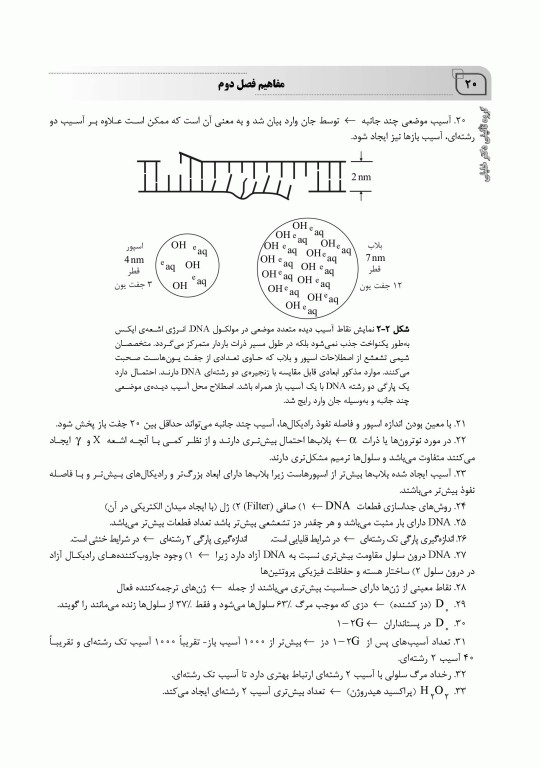 ۲۰
مفاهیم فصل دوم
گروه تألیفی دکتر خلیلی
۲۰. آسیب موضعی چند جانبه ← توسط جان وارد بیان شد و به معنی آن است که ممکن است علاوه بر آسیب دو
رشته‌ای، آسیب بازها نیز ایجاد شود.
2 nm
اسپور
4 nm
قطر
۳ جفت یون
OH e aq
e aq OH
e aq
OH
بلاب
7 nm
قطر
۱۲ جفت یون
OH e aq
OH e aq
OH e aq
OH e aq
OH e aq
OH e aq
OH e aq
OH e aq
OH e aq
OH e aq
OH e aq
OH e aq
شکل ۲-۲ نمایش نقاط آسیب دیده متعدد موضعی در مولکول DNA. انرژی اشعه‌ی ایکس
به‌طور یکنواخت جذب نمی‌شود بلکه در طول مسیر ذرات باردار متمرکز می‌گردد. متخصصان
شیمی تشعشع از اصطلاحات اسپور و بلاب که حاوی تعدادی از جفت یون‌هاست صحبت
می‌کنند. موارد مذکور ابعادی قابل مقایسه با زنجیره‌ی دو رشته‌ای DNA دارند. احتمال دارد
یک پارگی دو رشته DNA با یک آسیب باز همراه باشد. اصطلاح محل آسیب دیده‌ی موضعی
چند جانبه و به‌وسیله جان وارد رایج شد.
۲۱. با معین بودن اندازه اسپور و فاصله نفوذ رادیکال‌ها، آسیب چند جانبه می‌تواند حداقل بین ۲۰ جفت باز پخش شود.
۲۲. در مورد نوترون‌ها یا ذرات α ← بلاب‌ها احتمال بیش‌تری دارند و از نظر کمی با آنچه اشعه X و γ ایجاد
می‌کنند متفاوت می‌باشد و سلول‌ها ترمیم مشکل‌تری دارند.
۲۳. آسیب ایجاد شده بلاب‌ها بیش‌تر از اسپورهاست زیرا بلاب‌ها دارای ابعاد بزرگ‌تر و رادیکال‌های بیش‌تر و با فاصله
نفوذ بیش‌تر می‌باشند.
۲۴. روش‌های جداسازی قطعات DNA ← ۱) صافی (Filter) ۲) ژل (با ایجاد میدان الکتریکی در آن)
۲۵. DNA دارای بار مثبت می‌باشد و هر چقدر دز تشعشعی بیش‌تر باشد تعداد قطعات بیش‌تر می‌باشد.
۲۶. اندازه‌گیری پارگی تک رشته‌ای ← در شرایط قلیایی است. اندازه‌گیری پارگی ۲ رشته‌ای ← در شرایط خنثی است.
۲۷. DNA درون سلول مقاومت بیش‌تری نسبت به DNA آزاد دارد زیرا ← ۱) وجود جاروب‌کننده‌های رادیکال آزاد
در درون سلول ۲) ساختار هسته و حفاظت فیزیکی پروتئین‌ها
۲۸. نقاط معینی از ژن‌ها دارای حساسیت بیش‌تری می‌باشند از جمله ← ژن‌های ترجمه‌کننده فعال
۲۹. D۰ (دز کشنده) ← دزی که موجب مرگ ۶۳٪ سلول‌ها می‌شود و فقط ۳۷٪ از سلول‌ها زنده می‌مانند را گویند.
۳۰. D۰ در پستانداران ← ۱-۲G
۳۱. تعداد آسیب‌های پس از ۱-۲G دز ← بیش‌تر از ۱۰۰۰ آسیب باز- تقریباً ۱۰۰۰ آسیب تک رشته‌ای و تقریباً
۴۰ آسیب ۲ رشته‌ای.
۳۲. رخداد مرگ سلولی با آسیب ۲ رشته‌ای ارتباط بهتری دارد تا آسیب تک رشته‌ای.
۳۳. H۲O۲ (پراکسید هیدروژن) ← تعداد بیش‌تری آسیب ۲ رشته‌ای ایجاد می‌کند.